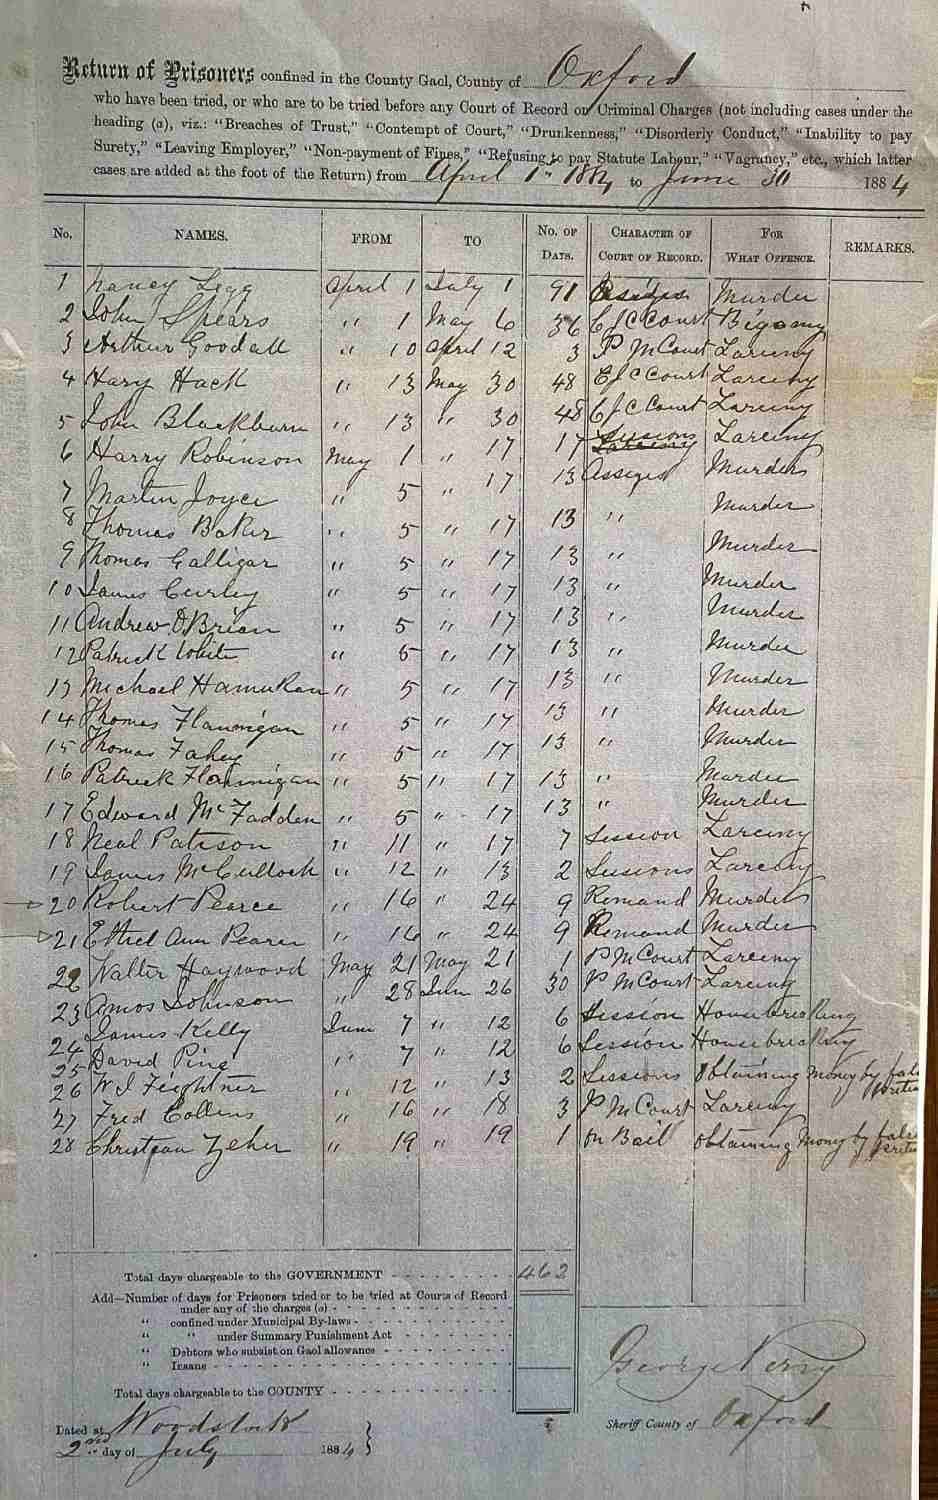 Return of Prisoners confined in the County Gaol, County of Oxford
who have been tried, or who are to be tried before any Court of Record on Criminal Charges (not including cases under the
heading (a), viz.: "Breaches of Trust," "Contempt of Court," "Drunkenness," "Disorderly Conduct," "Inability to pay
Surety," "Leaving Employer," "Non-payment of Fines," "Refusing to pay Statute Labour," "Vagrancy," etc., which latter
cases are added at the foot of the Return) from April 1st 1884 to June 30 1884
No. NAMES. FROM TO No. of Days. Character of Court of Record. For What Offence. REMARKS.
1 Nancy Legg April 1 July 1 91 Assizes Murder
2 John Spears " 1 May 6 36 C J C Court Bigamy
3 Arthur Goodall " 10 April 12 3 P M Court Larceny
4 Hary Hack " 13 May 30 48 C J C Court Larceny
5 John Blackburn " 13 " 30 48 C J C Court Larceny
6 Harry Robinson May 1 " 17 17 Sessions Larceny
7 Martin Joyce " 5 " 17 13 Assizes Murder
8 Thomas Baker " 5 " 17 13 " Murder
9 Thomas Galligar " 5 " 17 13 " Murder
10 James Curley " 5 " 17 13 " Murder
11 Andrew O'Brian " 5 " 17 13 " Murder
12 Patrick White " 5 " 17 13 " Murder
13 Michael " 5 " 17 13 " Murder
14 Thomas Flannigan " 5 " 17 13 " Murder
15 Thomas Fahey " 5 " 17 13 " Murder
16 Patrick Flannigan " 5 " 17 13 " Murder
17 Edward McFadden " 5 " 17 13 " Murder
18 Neal Patison " 11 " 17 7 Session Larceny
19 James McCullock " 12 " 13 2 Sessions Larceny
20 Robert Pearce " 16 " 24 9 Remand Murder
21 Ethel Ann Pearce " 16 " 24 9 Remand Murder
22 Walter Haywood May 21 May 21 1 P M Court Larceny
23 Amos Johnson " 28 Jun 26 30 P M Court Larceny
24 James Kelly Jun 7 " 12 6 Session Housebreaking
25 David Pine " 7 " 12 6 Session Housebreaking
26 W J Feightner " 12 " 13 2 Sessions Obtaining money by false
27 Fred Collins " 16 " 18 3 P M Court Larceny
28 Christian Zeher " 19 " 19 1 on Bail obtaining money by false
Total days chargeable to the GOVERNMENT 462
Add—Number of days for Prisoners tried or to be tried at Courts of Record
under any of the charges (a)
" confined under Municipal By-laws
" " under Summary Punishment Act
" Debtors who subsist on Gaol allowance
" Insane
Total days chargeable to the COUNTY
George Perry
Dated at Woodstock
Sheriff County of Oxford
2nd day of July 1884